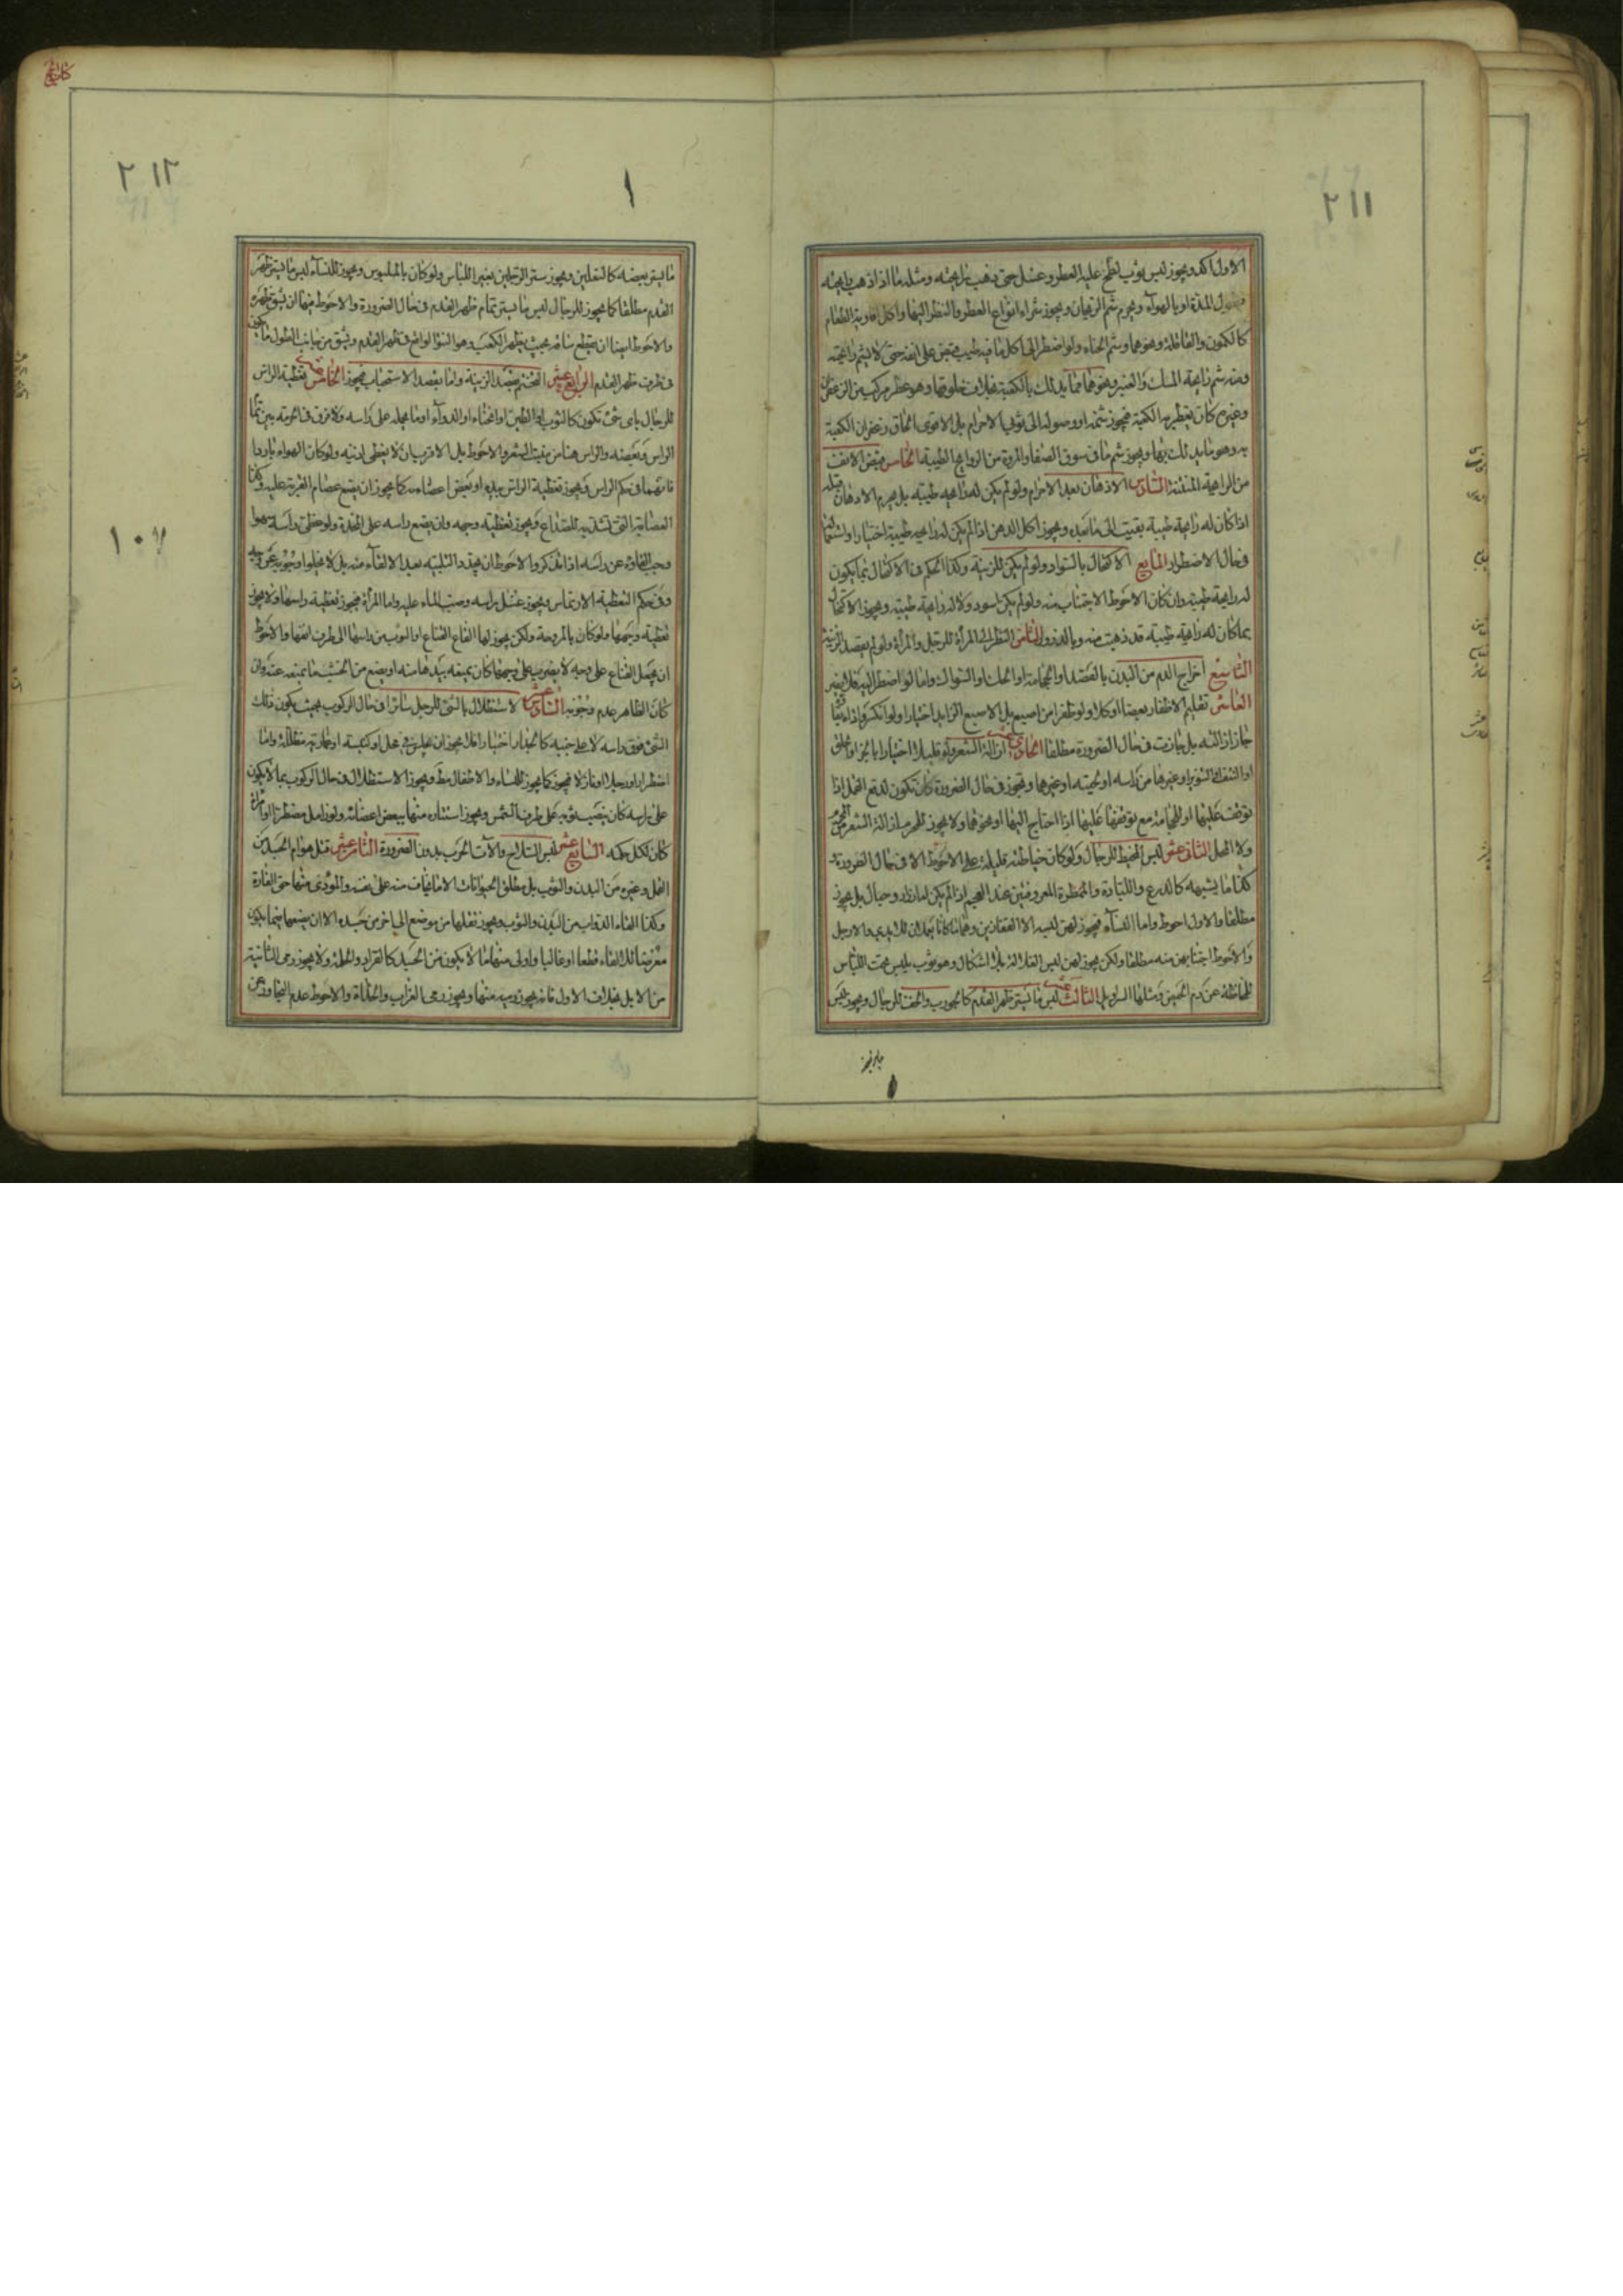 ٢١١
الاول اكد ويجوز لبس ثوب لطخ عليه العطر وغسل حتى ذهب رايحته ومثله ما اذا ذهب رايحته
بطول المدة او بالهواء ويحرم شم الريحان ويجوز شراء انواع العطر والنظر اليها واكل افاويه الطعام
كالكمون والقاقلة ونحوهما وشم الحناء ولو اضطر الى اكل ما فيه طيب قبض على انفه حتى لا يشم رائحته
ومنه شم رايحة المسك والعنبر ونحوهما مما يدلك بالكعبة بخلاف خلوقها وهو عطر مركب من الزعفران
وغيره كان يعطر به الكعبة فيجوز شمه او وصوله الى ثوبي الاحرام بل الاقوى الحاق زعفران الكعبة
به وهو ما يدلك بها ويجوز شم ما في سوق الصفا والمروة من الروايح الطيبة الخامس قبض الانف
من الرايحة المنتنة السادس الادهان بعد الاحرام ولو لم يكن له رايحة طيبة بل يحرم الادهان قبله
اذا كان له رايحة طيبة بقيت الى ما بعده ويجوز اكل الدهن اذا لم يكن له رايحة طيبة اختيارا واستعماله
في حال الاضطرار السابع الاكتحال بالسواد ولو لم يكن للزينة وكذا الحكم في الاكتحال بما يكون
له رايحة طيبة وان كان الاحوط الاجتناب منه ولو لم يكن اسود ولا له رايحة طيبة ويجوز الاكتحال
بما كان له رايحة طيبة قد ذهبت منه وبالذرور الثامن النظر الى المرأة للرجل والمرأة ولو لم يقصد الزينة
التاسع اخراج الدم من البدن بالفصد او الحجامة او الحك او السواك واما لو اضطر اليه فلا بغير
العاشر تقليم الاظفار بعضا او كلا ولو ظفرا من اصبع بل الاصبع الزايد اختيارا ولو انكسر واذاه بقائه
جاز ازالته بل جازت في حال الضرورة مطلقا الحادي عشر ازالة الشعر ولو قليلا اختيارا بالجز او الحلق
او النتف او النورة او غيرها من راسه او لحيته او غيرهما ويجوز في حال الضرورة كان تكون لدفع القمل اذا
توقفت عليها او للحجامة مع توقفها عليها اذا احتاج اليها او نحوها ولا يجوز للمحرم ازالة الشعر من المحرم
ولا المحل الثاني عشر لبس المخيط للرجال ولو كان خياطته قليلة على الاحوط الا في حال الضرورة و
كذا ما يشبهه كالدرع واللبادة والممطرة المعروفتين عند العجم اذا لم يكن لها ازرار وحبال بل يجوز
مطلقا والاول احوط واما النساء فيجوز لهن لبسه الا القفازين وهما ما كانا يعدان للايدي والارجل
والاحوط اجتنابهن منه مطلقا ولكن يجوز لهن لبس الغلالة بلا اشكال وهو ثوب يلبس تحت اللباس
لحفاظته عن دم الحيض ومثلها السراويل الثالث عشر لبس ما يستر ظهر القدم كالجورب والخف للرجال ويجوز لبس
٢١٢
١٠٧
ما يستر بعضه كالنعلين ويجوز ستر الرجلين بغير اللباس ولو كان بالملبوس ويجوز للنساء لبس ما يستر ظهر
القدم مطلقا كما يجوز للرجال لبس ما يستر تمام ظهر القدم في حال الضرورة والاحوط فيها ان يشق ظهره
والاحوط ايضا ان يقطع ساقه بحيث يظهر الكعب وهو النتو الواقع في ظهر القدم ويشق من جانب الطول ما يكون
في طرف ظهر القدم الرابع عشر التختم بقصد الزينة واما بقصد الاستحباب فيجوز الخامس عشر تغطية الراس
للرجال باي شيء تكون كالثوب او الطين او الحناء او الدواء او ما يحمله على راسه ولا فرق في الحرمة بين تمام
الراس وبعضه والراس هنا من منبت الشعر والاحوط بل الاقرب ان لا يغطي اذنيه ولو كان الهواء باردا
فانهما في حكم الراس ويجوز تغطية الراس بيده او بعض اعضائه كما يجوز ان يضع عصام القربة عليه وكذا
العصابة التي تشد به للصداع ويجوز تغطية وجهه وان يضع راسه على المخدة ولو غطى راسه سهوا
وجب القاؤه عن راسه اذا تذكر والاحوط ان يجدد التلبية بعد الالقاء منه بل لا يخلو وجوبه عن وجه
وفي حكم التغطية الارتماس ويجوز غسل راسه وصب الماء عليه واما المرأة فيجوز تغطية راسها ولا يجوز
تغطية وجهها ولو كان بالمروحة ولكن يجوز لها القاء القناع او الثوب من راسها الى طرف انفها والاحوط
ان يجعل القناع على وجه لا يضرب على وجهها كان يمنعه بيدها منه او يضع من الخشب ما يمنعه عنه وان
كان الظاهر عدم وجوبه السادس عشر الاستظلال بالشيء للرجل سائرا في حال الركوب بحيث يكون ذلك
الشيء فوق راسه لا على جنبه كالجدار اختيارا فلا يجوز ان يجلس في محمل او كنيسة او عمارية مظللة واما
اضطرارا او رجلا او نازلا فيجوز كما يجوز للنساء والاطفال مط ويجوز الاستظلال في حال الركوب بما لا يكون
على راسه كان ينصب ثوبه على طرف الشمس ويجوز استتاره منها ببعض اعضائه ولو زامل مضطرا او امرأة
كان لكل حكمه السابع عشر لبس السلاح والآت الحرب بدون الضرورة الثامن عشر قتل هوام الجسد من
القمل وغيره من البدن والثوب بل مطلق الحيوانات الا ما يخاف منه على نفسه والمؤذي منها حتى الفارة
وكذا القاء الدواب من البدن والثوب ويجوز نقلها من موضع الى اخر من جسده الا ان يضعها فيما يكون
معرضا للالقاء قطعا او غالبا واولى منها ما لا يكون من الجسد كالقراد والحلمة ولا يجوز رمي الثانية
من الابل بخلاف الاول فانه يجوز رميه منها ويجوز رمي الغراب والحدأة والاحوط عدم التجاوز عن